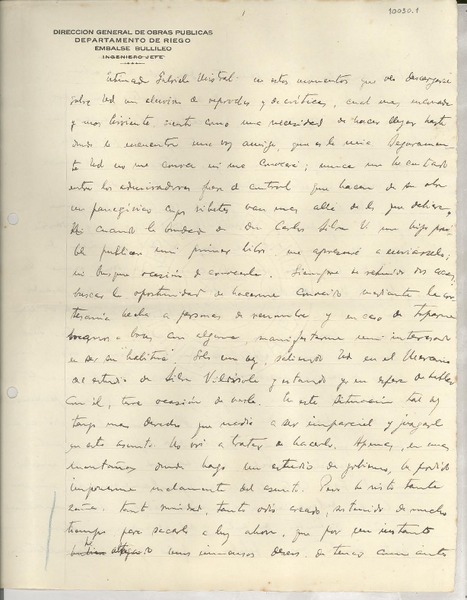 10030.1
DIRECCION GENERAL DE OBRAS PUBLICAS
DEPARTAMENTO DE RIEGO
EMBALSE BULLILEO
INGENIERO-JEFE
Estimada Gabriela Mistral: en estos momentos que se descargará
sobre Ud un aluvión de reproches y de críticas, cual mas enconada
y mas hiriente, siento como una necesidad de hacer llegar hasta
donde se encuentre una voz amiga, que es la mia. Seguramen-
te Ud no me conoce ni me conocerá; nunca me he contado
entre los admiradores fuera de control que hacen de su obra
un panegírico cuyos ribetes van mas allá de lo que debiera.
Ni cuando la bondad de Don Carlos Silva V me hizo posi-
ble publicar mi primer libro me apresuré a enviárselo;
ni busqué ocasión de conocerla. Siempre he rehuido dos cosas,
buscar la oportunidad de hacerme conocido mediante la cor-
tesanía hecha a personas de renombre y en caso de toparme
a boca con alguna, manifestarme mui interesado
en ser su habitué. Solo una vez, saliendo Ud en el Mercurio
del estudio de Silva Vildósola y estando yo en espera de hablar
con él, tuve ocasión de verla. En esta situación tal vez
tengo mas derecho que nadie a ser imparcial y juzgar
en este asunto. No voi a tratar de hacerlo. Apenas, en unas
montañas donde hago un estudio de gobierno, he podido
imponerme malamente del asunto. Pero he visto tanta
saña, tanta ruindad, tanto odio creado, retenido de mucho
tiempo para sacarlo a luz ahora, que por un instante
unos inmensos deseos de tener comunicantes